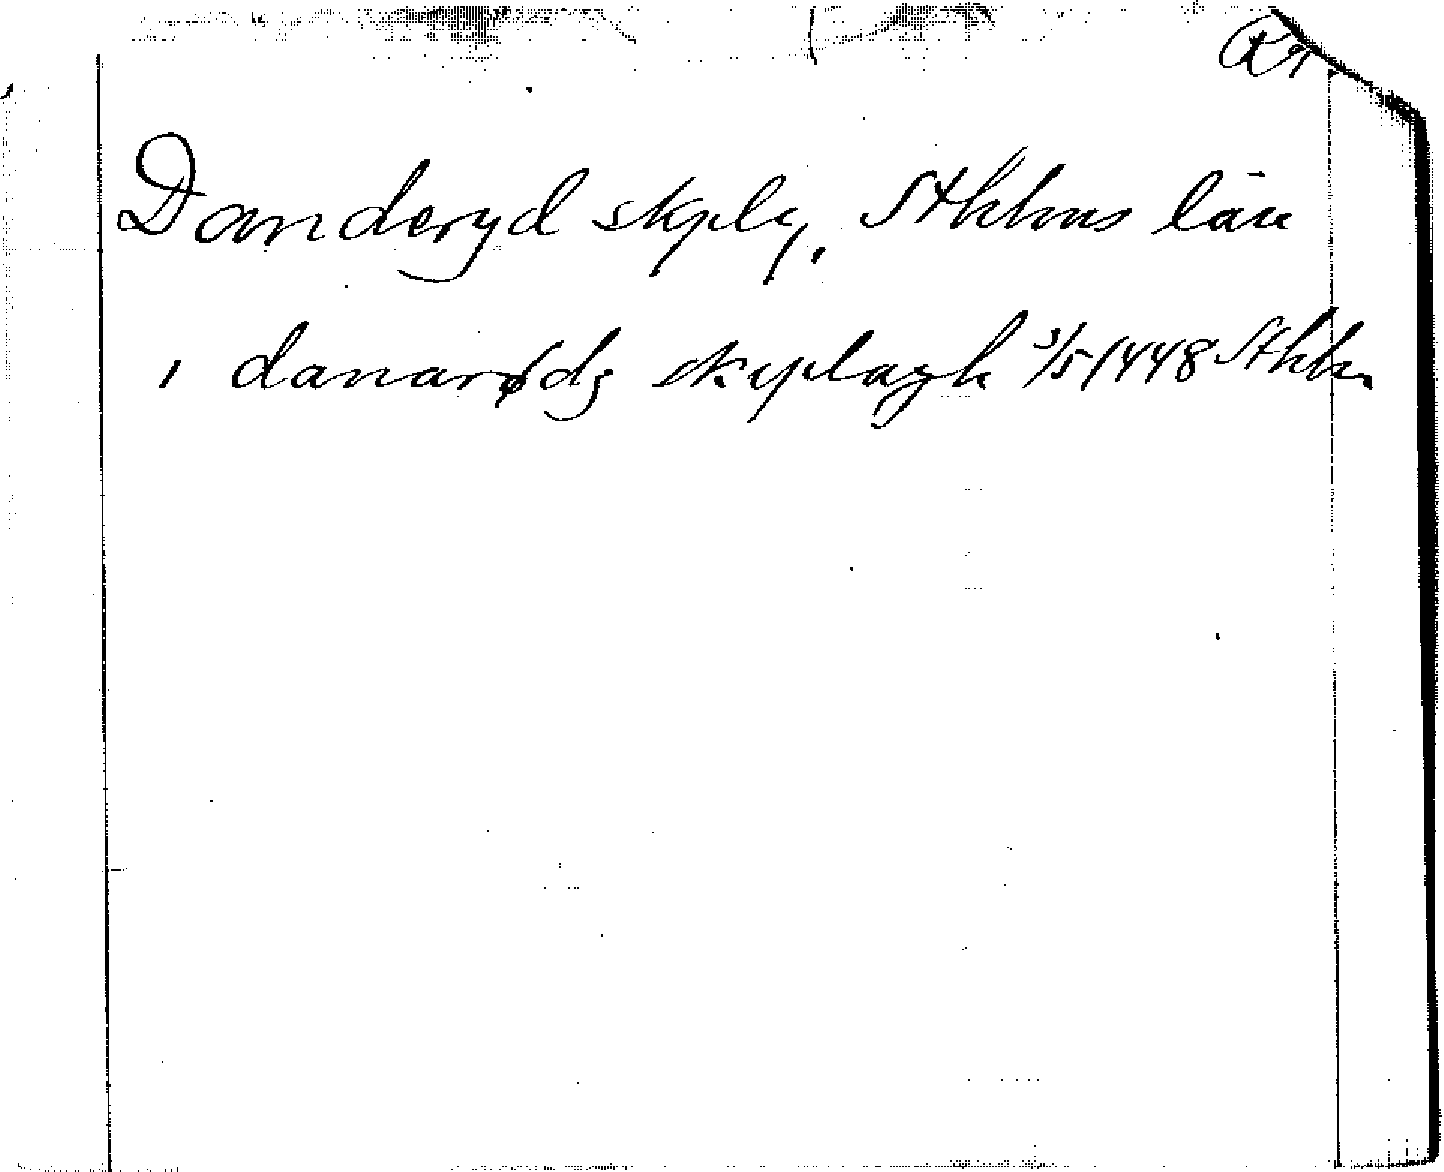 Danderyd skplg, Sthlms län
i danarødz skyplagh 3/5 1448 Sthlm